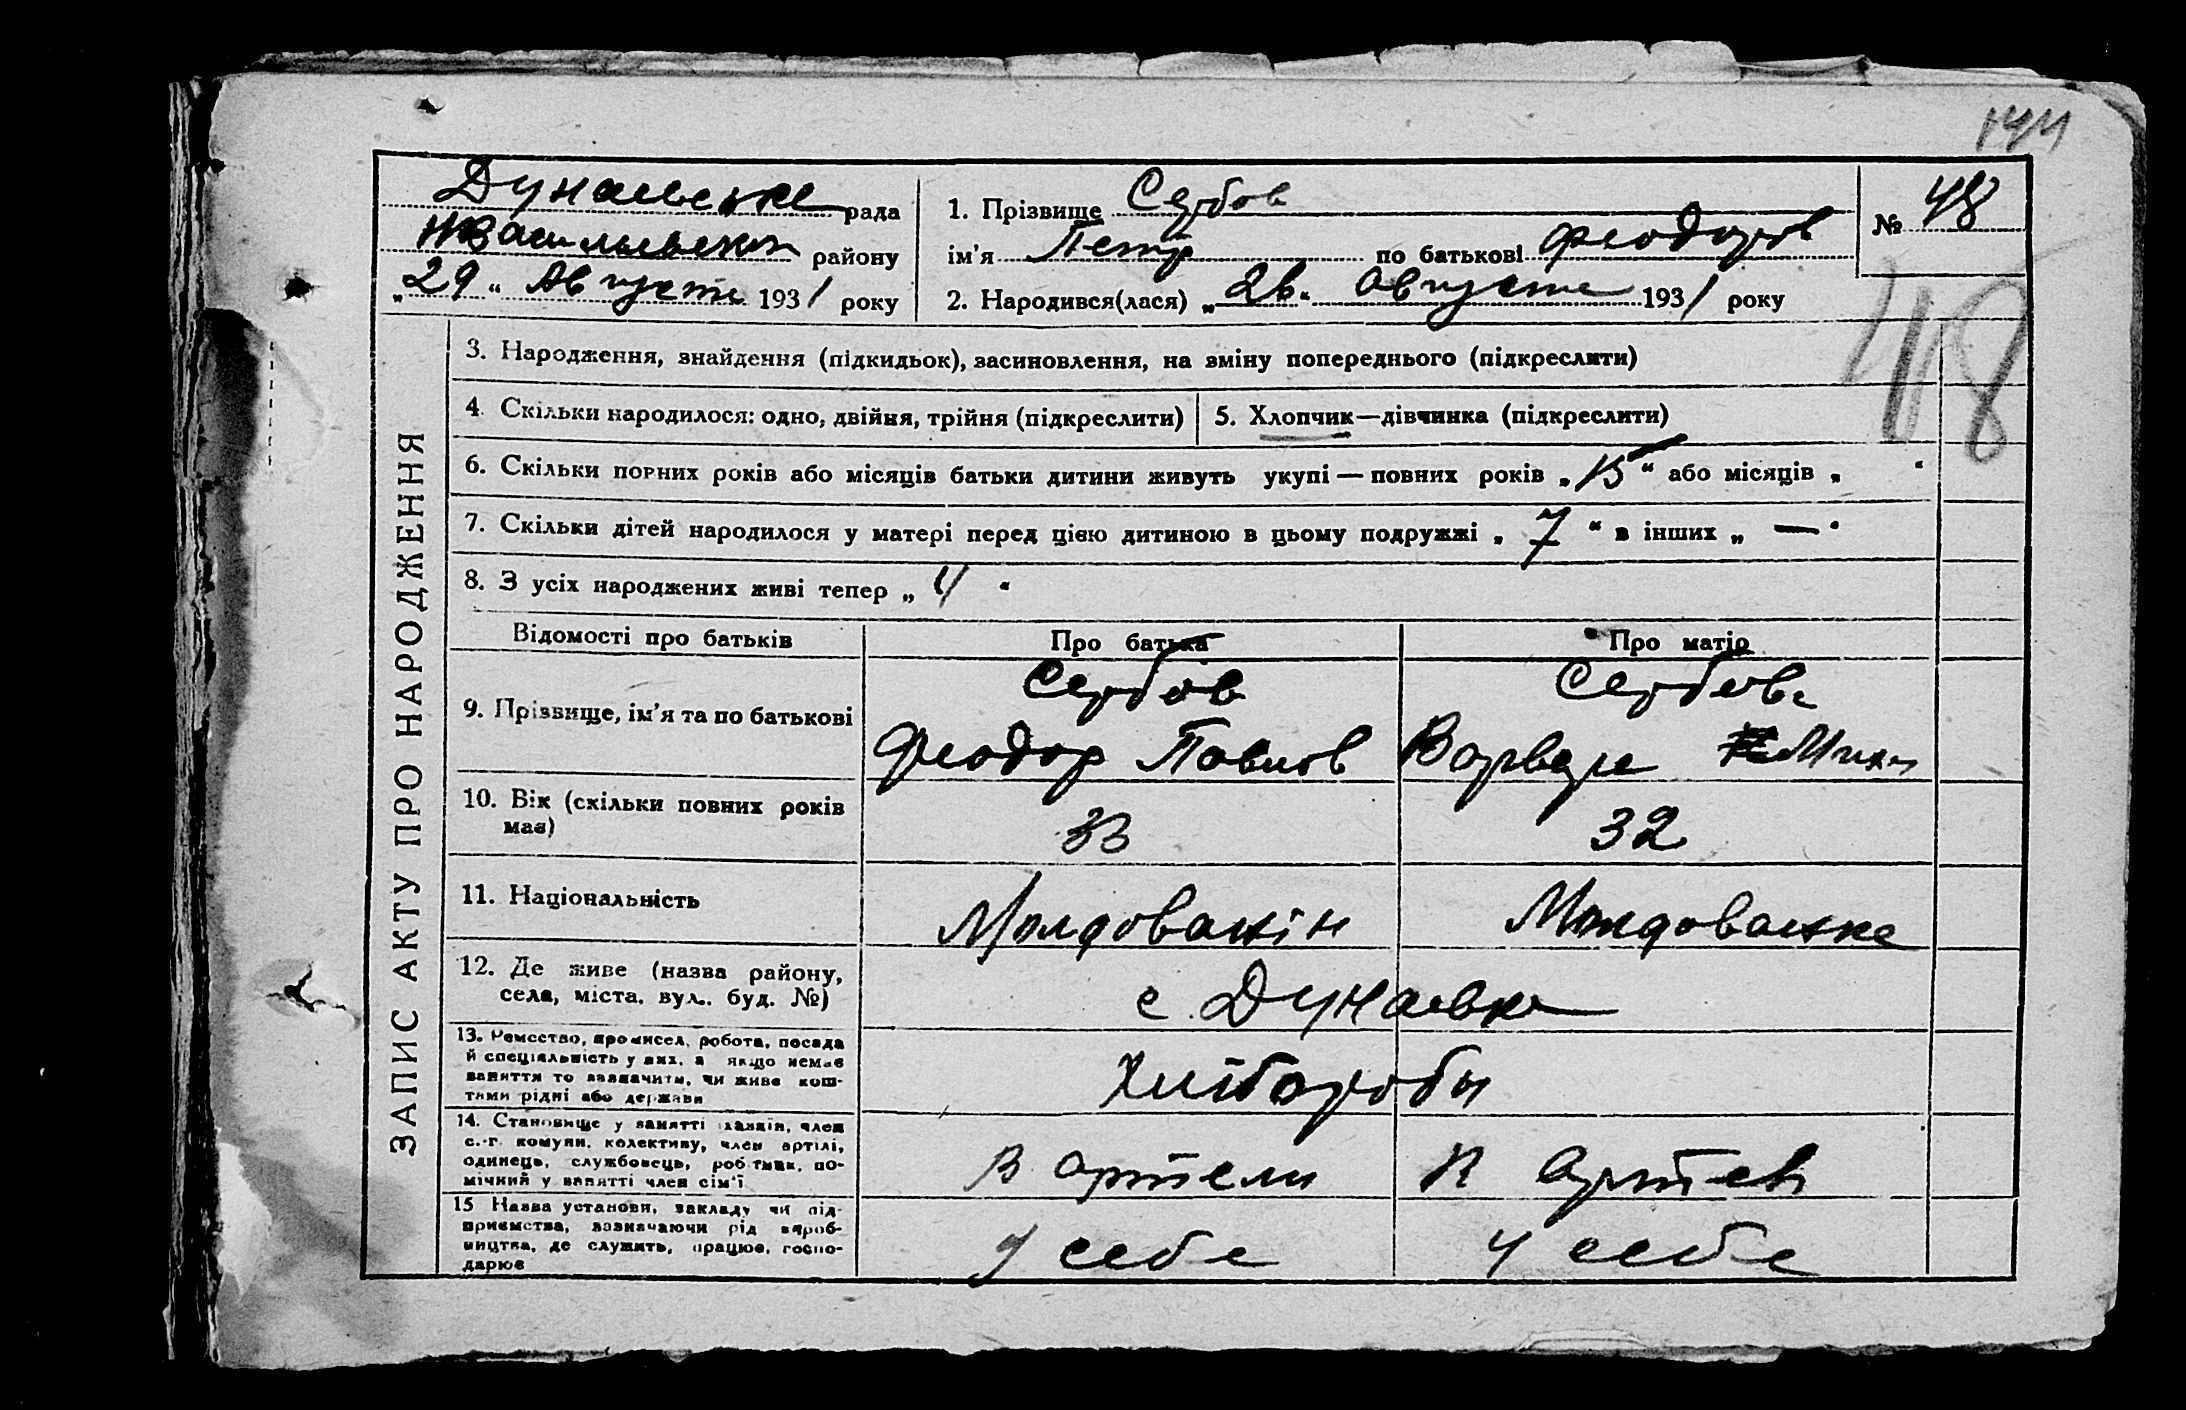 144
Дунаевське рада
НВасильевском району
„29“ Августа 1931 року
1. Прізвище Сербов
ім'я Петр по батькові Феодоров
2. Народився(лася) „26“ Августа 1931 року
№ 48
48
ЗАПИС АКТУ ПРО НАРОДЖЕННЯ
3. Народження, знайдення (підкидьок), засиновлення, на зміну попереднього (підкреслити)
4. Скільки народилося: одно, двійня, трійня (підкреслити)
5. Хлопчик—дівчинка (підкреслити)
6. Скільки повних років або місяців батьки дитини живуть укупі — повних років „15“ або місяців „ “
7. Скільки дітей народилося у матері перед цією дитиною в цьому подружжі „7“ в інших „—“
8. З усіх народжених живі тепер „4“
Відомості про батьків
Про батька
Про матір
9. Прізвище, ім'я та по батькові
Сербов
Феодор Павлов
Сербова
Варвара Мих
10. Вік (скільки повних років має)
33
32
11. Національність
Молдованін
Молдованка
12. Де живе (назва району,
села, міста, вул., буд. №)
с. Дунаевка
13. Ремество, промисел, робота, посада
й спеціяльність у них, а якщо немає
заняття то зазначити, чи живе кош-
тами рідні або держави
Хліборобы
14. Становище у занятті хазяїн, член
с.-г. комуни, колективу, член артілі,
одинець, службовець, робітник, по-
мічний у занятті член сім'ї
В артели
В Артели
15 Назва установи, закладу чи під-
приємства, зазначаючи рід вироб-
ництва, де служить, працює, госпо-
дарює
У себе
У себе